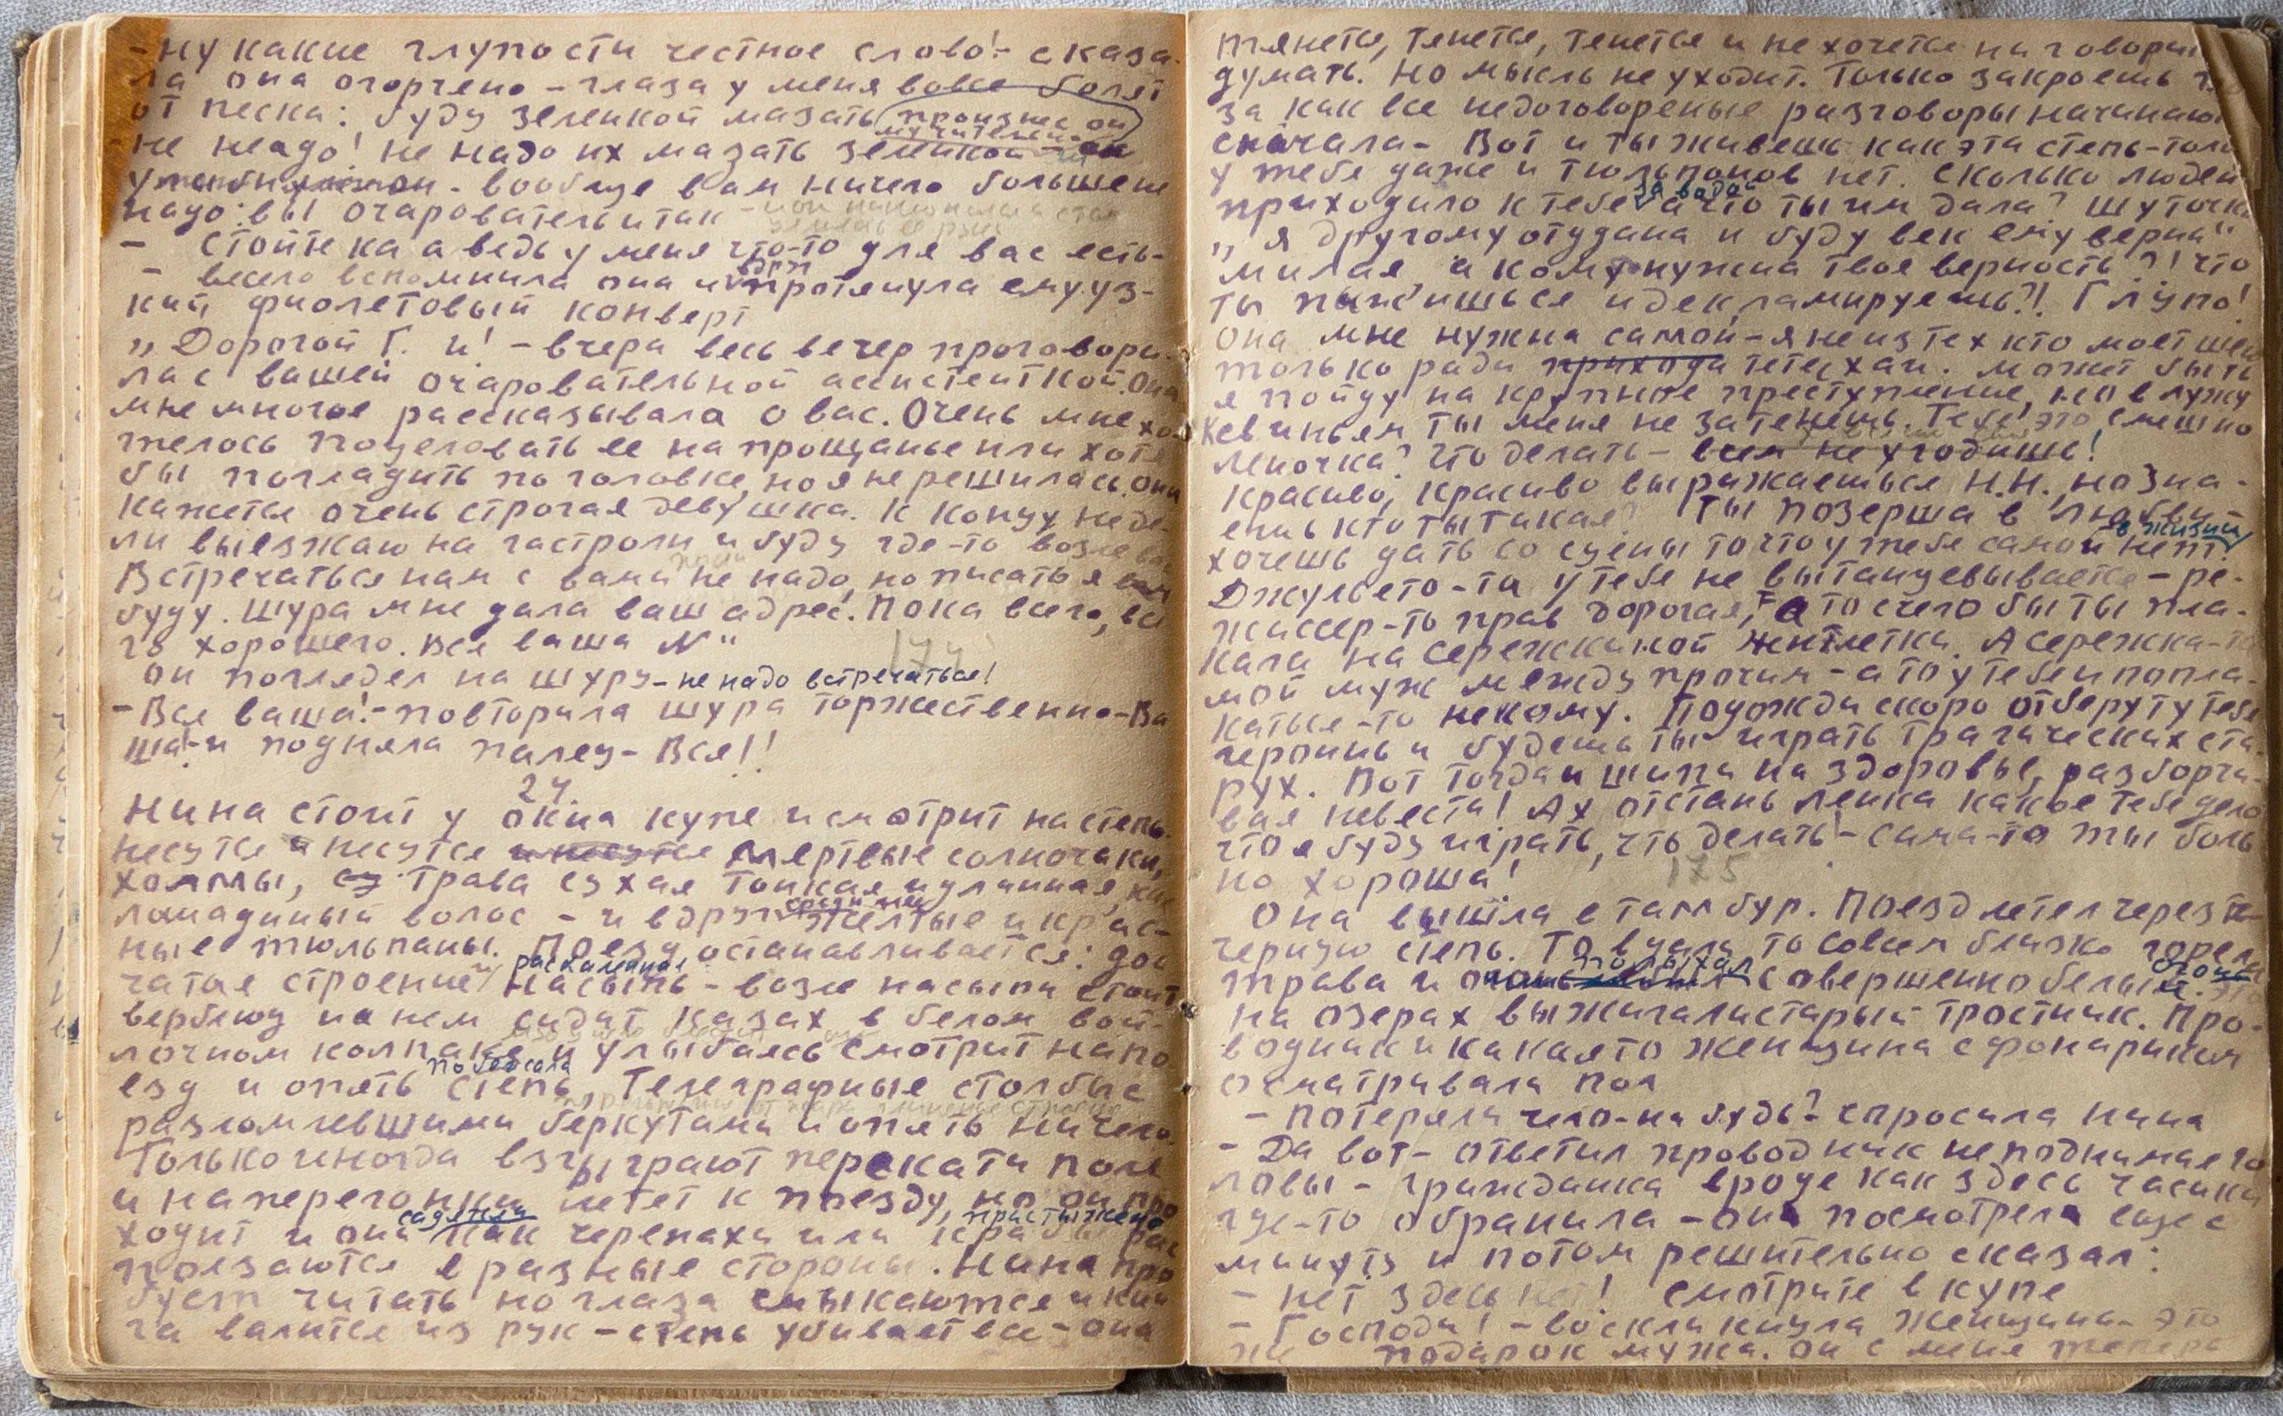 - ну какие глупости честное слово! - сказа-
ла она огорчено - глаза у меня вовсе болят
от песка: буду зеленкой мазать
не неадо! не надо их мазать зеленкой
он - вообще вам ничего больше не
надо: вы очаровательны и так -
- Стойте ка а ведь у меня что-то для вас есть-
- весело вспомнила она и вдруг протянула ему уз-
кий фиолетовый конверт
„Дорогой Г. и! - вчера весь вечер проговори-
ла с вашей очаровательной ассистенткой. Она
мне многое рассказывала о вас. Очень мне хо
телось поцеловать ее на прощанье или хотя
бы погладить по головке, но я не решилась. Она
кажется очень строгая девушка. К концу неде-
ли выезжаю на гастроли и буду где-то возле вас
Встречаться нам с вами не надо, но писать я вам
буду. Шура мне дала ваш адрес. Пока всего, все
го хорошего. Вся ваша N"
174
он поглядел на шуру - не надо встречаться!
- Вся ваша! - повторила шура торжественно - Ва
ша! - и подняла палец - Вся!!
24.
Нина стоит у окна купе и смотрит на степь.
Несутся и несутся и несутся мертвые солончаки,
холмы, трава сухая тонкая и длинная, как
лошадиный волос - и вдруг среди нее желтые и крас-
ные тюльпаны. Поезд останавливается: дощ
чатое строение, раскаленная насыпь - возле насыпи стоит
верблюд на нем сидит казах в белом вой-
лочном колпаке и улыбаясь смотрит на по
езд и опять побежала степь, Телеграфные столбы с
разомлевшими беркутами и опять ничего.
Только иногда взыграют перекати поле
и наперегонки летет к поезду, но он про
ходит и они как черепахи или крабы рас
ползаются в разные стороны. Нина про
бует читать но глаза смыкаются и кни
га валится из рук - степь убивает все - она
тянется, тенется, тенется и не хочется ни говорить
думать. Но мысль не уходит. Только закроешь гла
за как все недоговореные разговоры начинают
сначала - Вот и ты живешь как эта степь - только
у тебя даже и тюльпонов нет. Сколько людей
приходило к тебе за водой а что ты им дала? Шуточки
„я другому отдана и буду век ему верна"
милая, а кому нужна твоя верность?! что
ты пыжишься и декламируешь?! Глупо!
Она мне нужна самой - я не из тех кто моет шею
только ради прихода тети хаи. может быть
я пойду на крупное преступление, но в лужу
к свиньям ты меня не затенешь. Тебе это смешно
Леночка? Что делать - всем не угодишь!
Красиво, красиво выражаешься Н.Н., но зна-
ешь кто ты такая? Ты позерша в любви
хочешь дать со сцены то что у тебя самой в жизни нет
Джульето-то у тебя не вытанцевывается - ре-
жиссер-то прав дорогая, а то с чего бы ты пла-
кала на сережкиной жилетки. А сережка-то
мой муж между прочим - а то у тебя и попла-
каться-то некому. Подожди скоро отберут у тебя
героинь и будешь ты играть трагических ста-
рух. Вот тогда и шипи на здоровье, разборчи-
вая невеста! Ах отстань ленка какое тебе дело
что я буду играть, что делать! - сама-то ты боль
но хороша!
175
Она вышла в тамбур. Поезд летел через ве-
чернюю степь. То вдали, то совсем близко горела
трава и полыхал совершенно белый огонь. это
на озерах выжигали старый тростник. Про-
водник и какая то женщина с фонариком
осматривали пол
- Потеряли чего-нибудь? - спросила Нина
- Да вот - ответил проводник не поднимая го
ловы - гражданка вроде как здесь часики
где-то обранила - он посмотрел еще с
минуту и потом решительно сказал:
- Нет здесь нет! смотрите в купе
- Господи! - воскликнула женщина - это
же подарок мужа. он с меня теперь